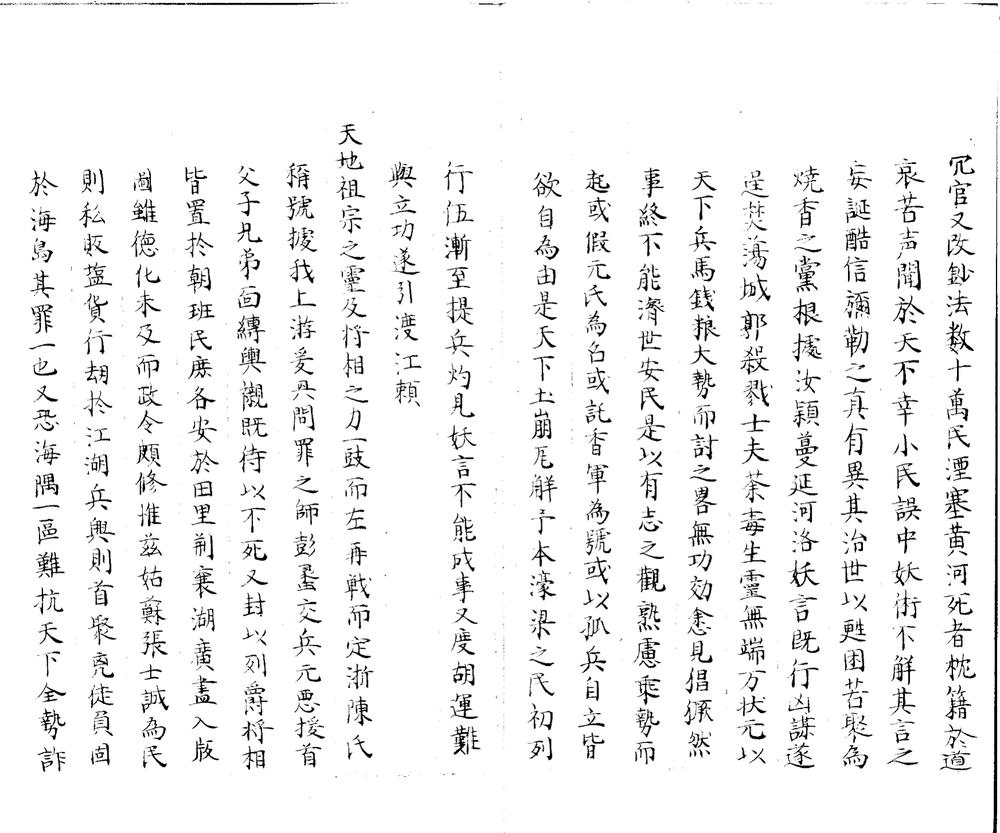 冗官又改鈔法数十萬民湮塞黄河死者枕籍於道
哀苦声聞於天不幸小民誤中妖術不解其言之
妄誕酷信彌勒之真有異其治世以甦困苦聚為
燒香之黨根據汝穎蔓延河洛妖言既行凶謀遂
逞焚蕩城郭殺戮士夫荼毒生靈無端万状元以
天下兵馬錢粮大勢而討之畧無功効愈見猖獗然
事終不能濟世安民是以有志之觀熟慮乘勢而
起或假元氏為名或託香軍為號或以孤兵自立皆
欲自為由是天下土崩瓦解予本濠梁之民初列
行伍漸至提兵灼見妖言不能成事又度胡運難
與立功遂引渡江賴
天地祖宗之靈及将相之力一鼓而左再戦而定浙陳氏
稱號據我上游爰具問罪之師彭蠡交兵元悪授首
父子兄弟面縳輿襯既待以不死又封以列爵将相
皆置於朝班民庶各安於田里荆襄湖廣盡入版
圖雖德化未及而政令頗修惟兹姑蘇張士誠為民
則私販塩貨行刼於江湖兵興則首聚兇徒負固
於海島其罪一也又恐海隅一區難抗天下全勢詐